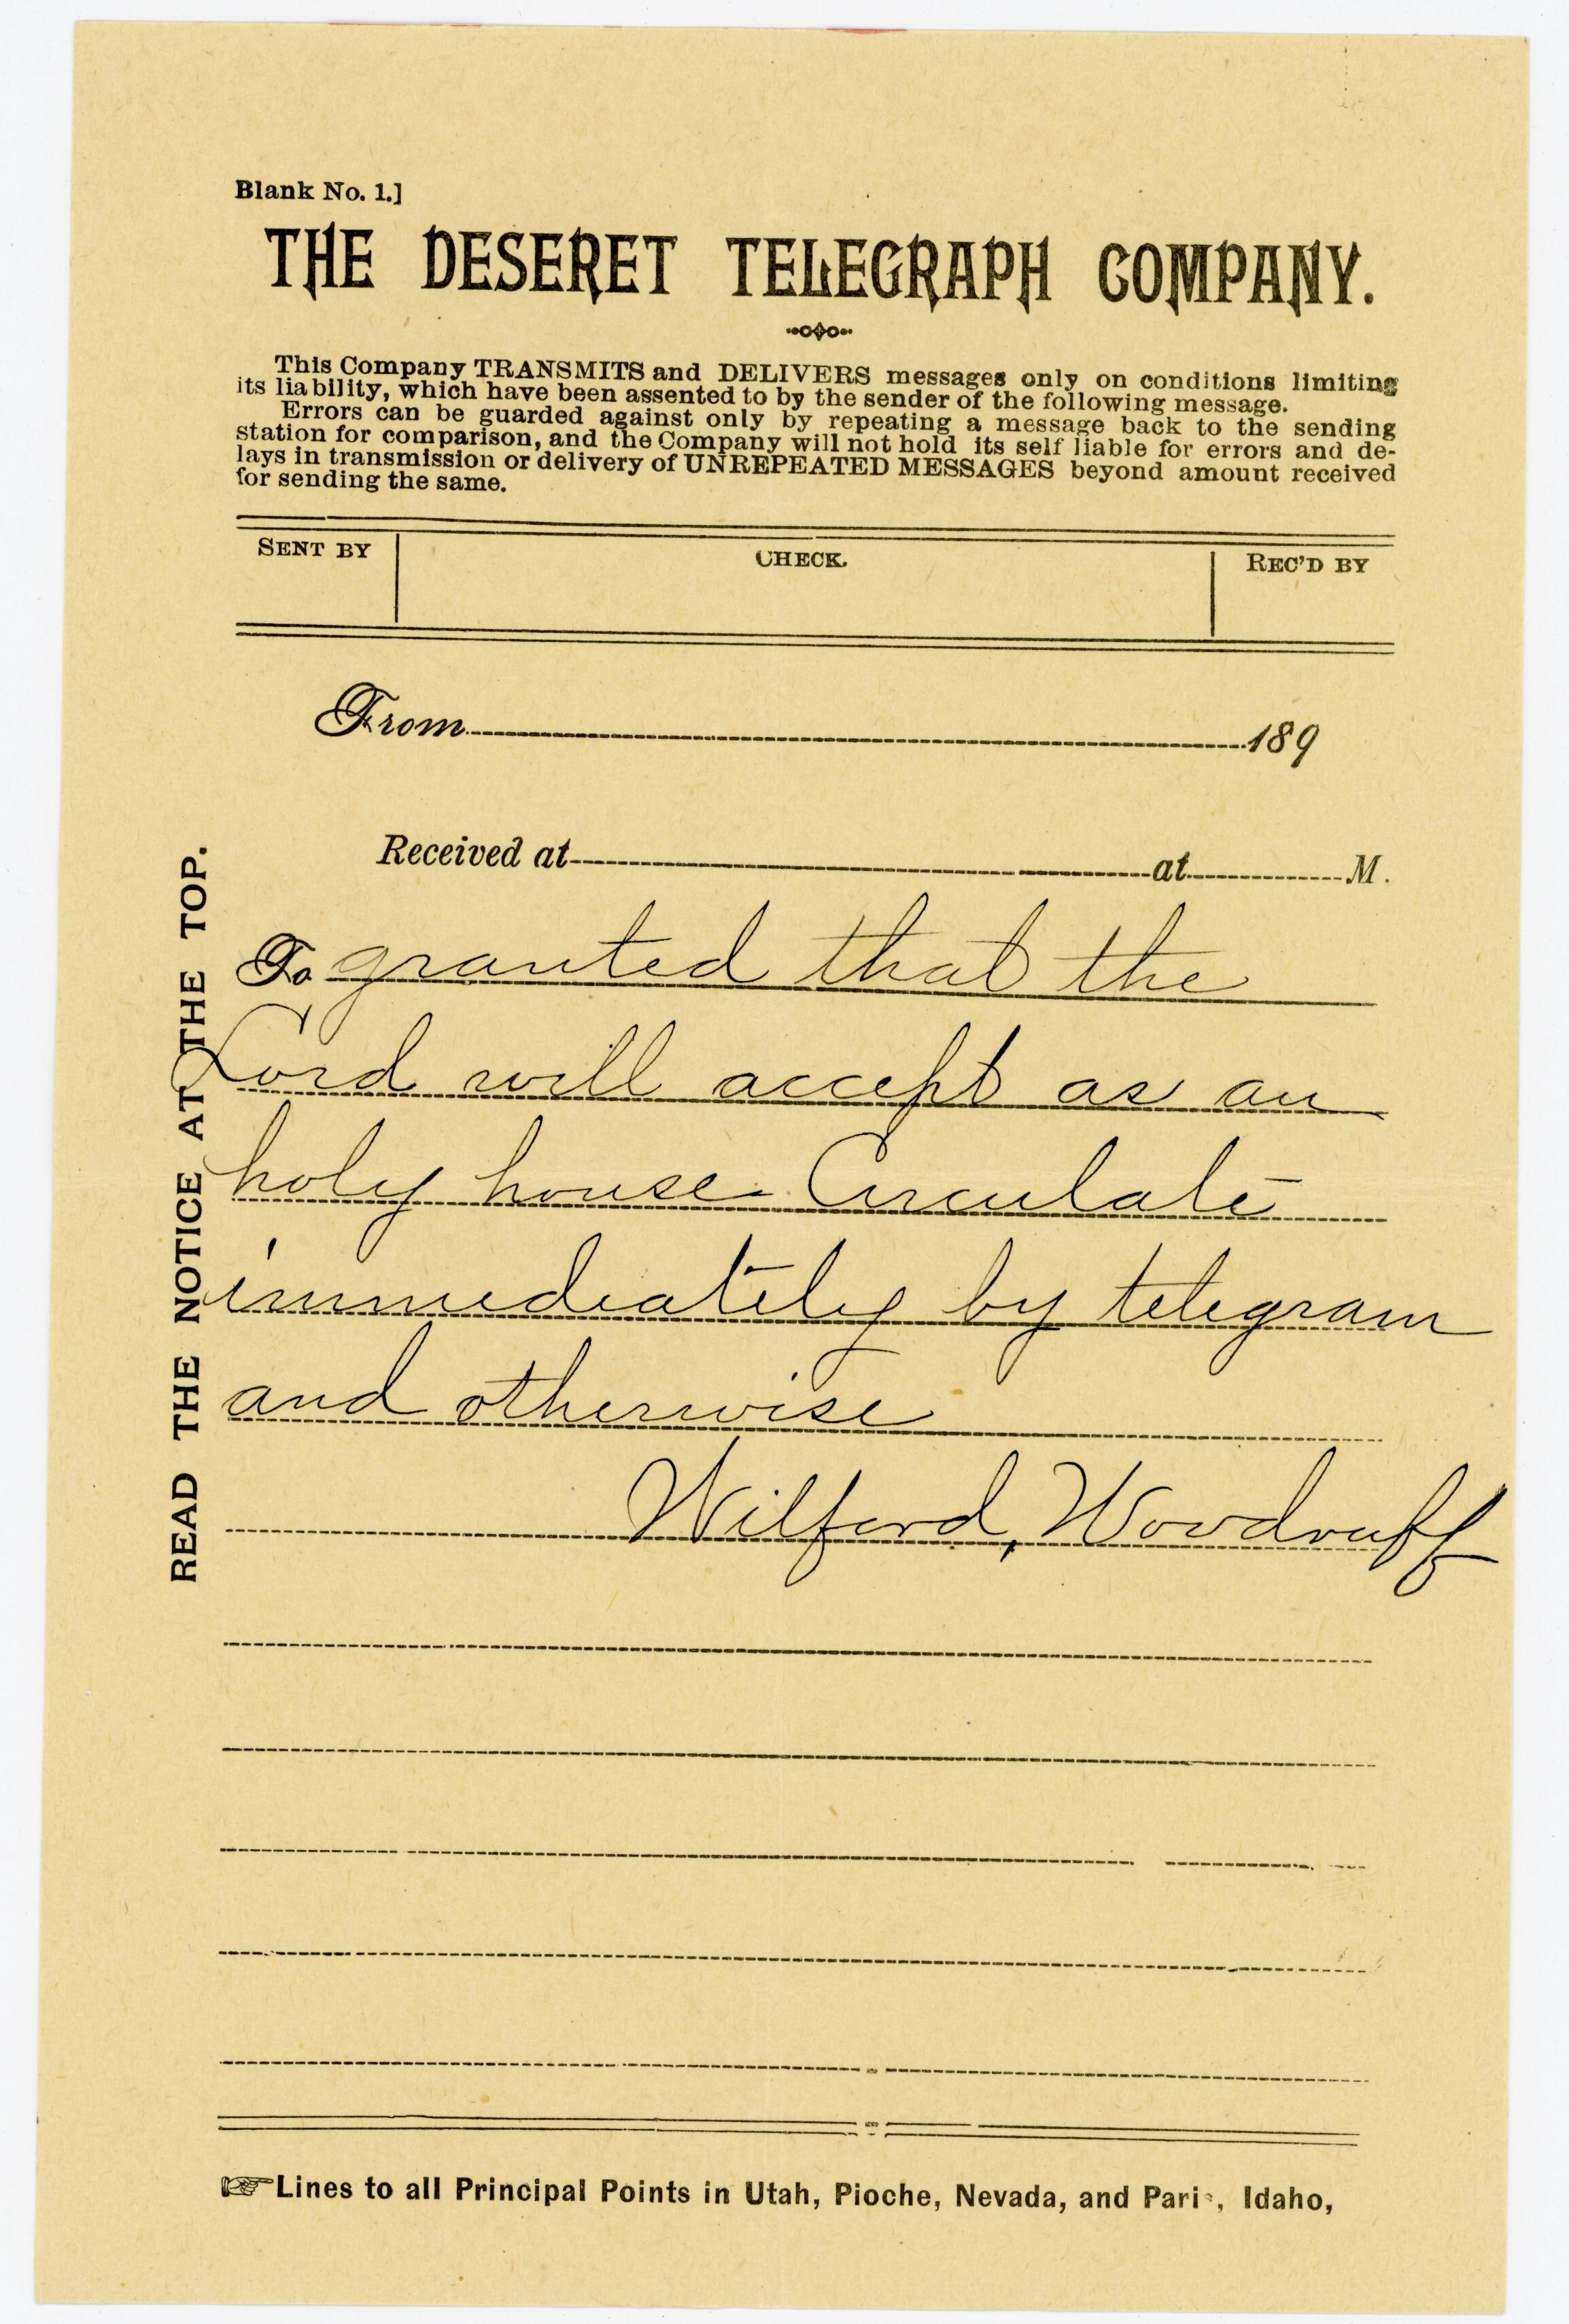 Blank No. 1.]
THE DESERET TELEGRAPH COMPANY.
This Company TRANSMITS and DELIVERS messages only on conditions limiting
its liability, which have been assented to by the sender of the following message.
Errors can be guarded against only by repeating a message back to the sending
station for comparison, and the Company will not hold its self liable for errors and de-
lays in transmission or delivery of UNREPEATED MESSAGES beyond amount received
for sending the same.
SENT BY CHECK. REC'D BY
From 189
Received at at M.
To granted that the
Lord will accept as an
holy house. Circulate
immediately by telegram
and otherwise
Wilford, Woodruff
READ THE NOTICE AT THE TOP.
☞Lines to all Principal Points in Utah, Pioche, Nevada, and Paris, Idaho,